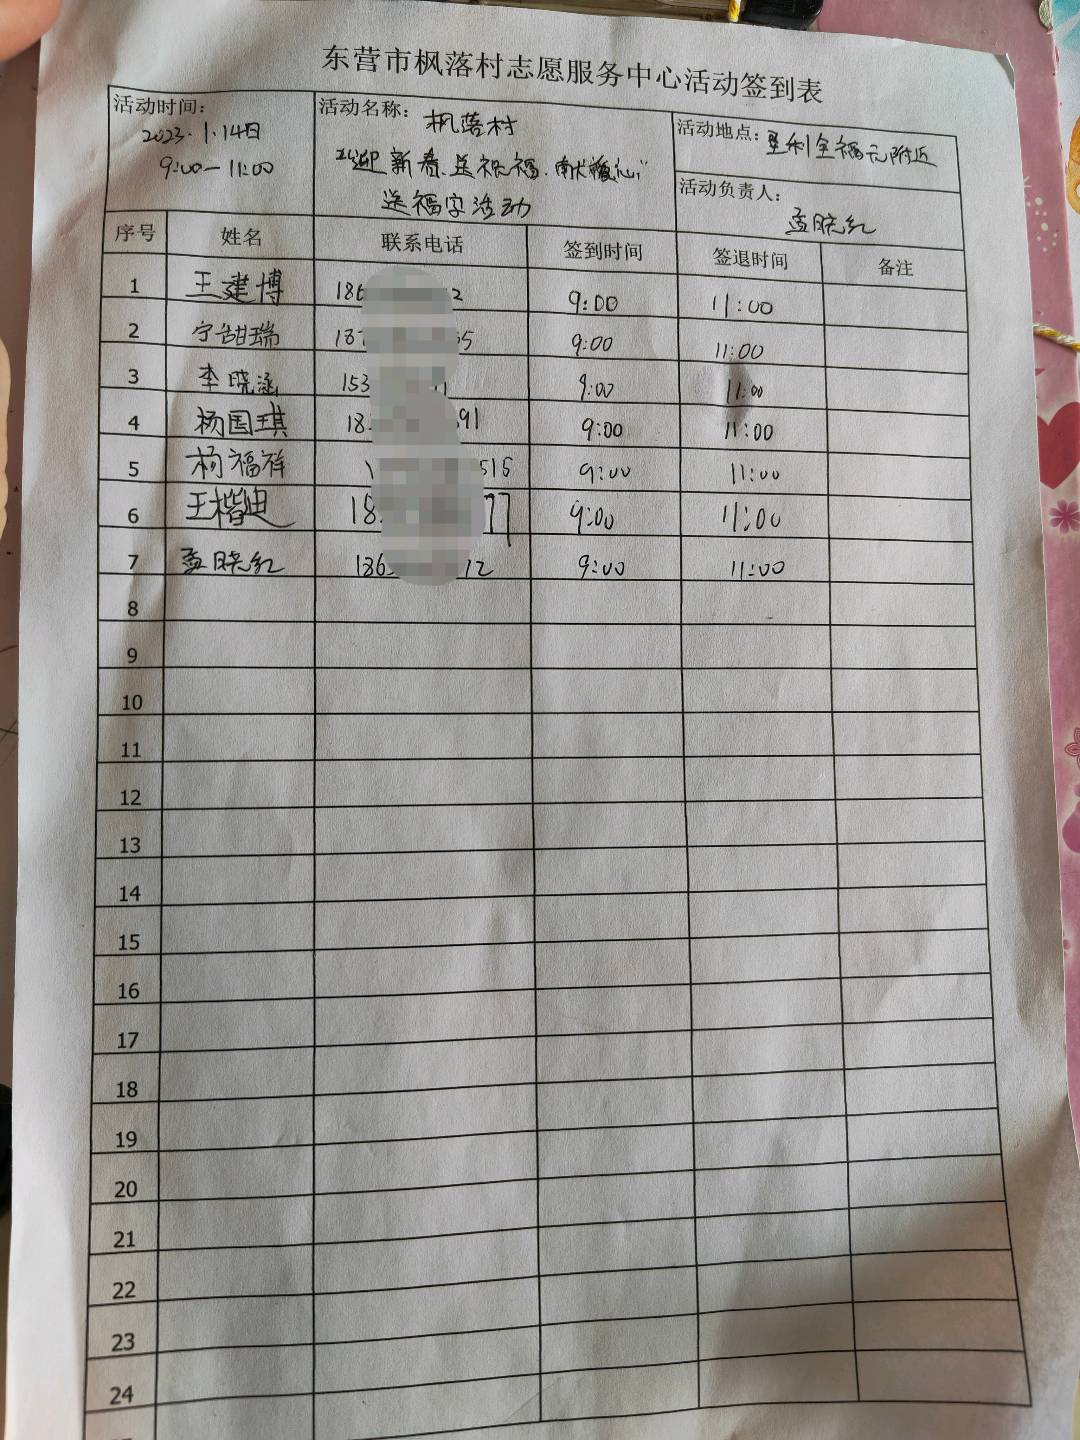 东营市枫落村志愿服务中心活动签到表
活动时间：
2023.1.14日
9:00—11:00
活动名称：枫落村
"迎新春.送祝福.献暖心"
送福字活动
活动地点：垦利全福元附近
活动负责人：
孟晓红
序号 姓名 联系电话 签到时间 签退时间 备注
1 王建博 186 2 9:00 11:00
2 宁甜瑞 187 55 9:00 11:00
3 李晓涵 153 9:00 11:00
4 杨国琪 18 91 9:00 11:00
5 杨福祥 516 9:00 11:00
6 王楷迪 18 77 9:00 11:00
7 孟晓红 186 12 9:00 11:00
8
9
10
11
12
13
14
15
16
17
18
19
20
21
22
23
24